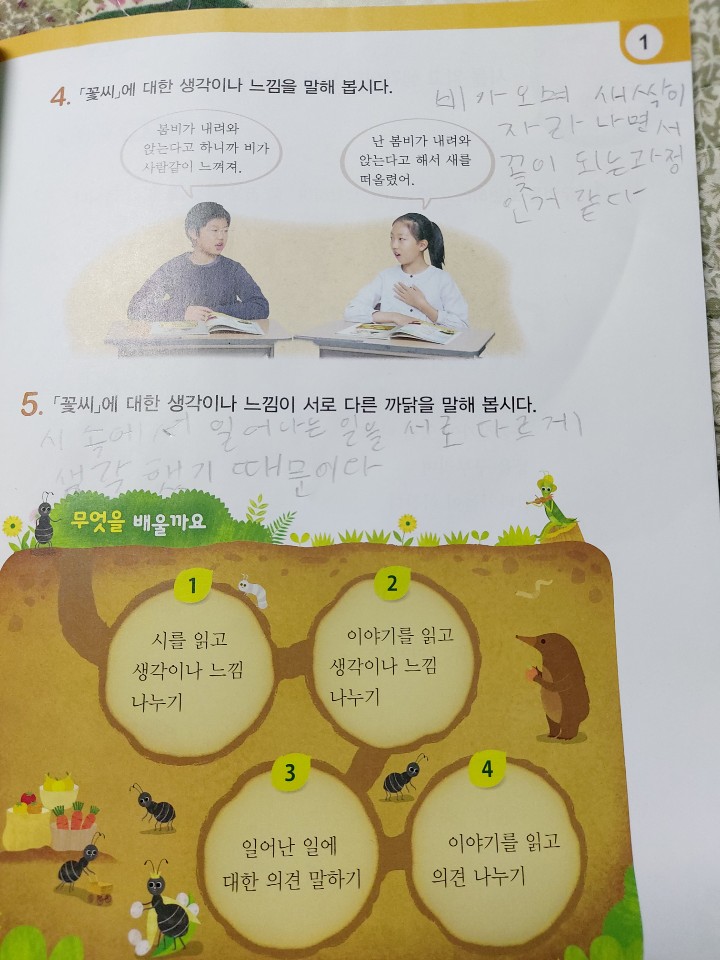 1
4. 「꽃씨」에 대한 생각이나 느낌을 말해 봅시다.
비가 오며 새싹이
자라나면서
꽃이 되는과정
인거 같다
봄비가 내려와
앉는다고 하니까 비가
사람같이 느껴져.
난 봄비가 내려와
앉는다고 해서 새를
떠올렸어.
5. 「꽃씨」에 대한 생각이나 느낌이 서로 다른 까닭을 말해 봅시다.
시 속에서 일어나는 일을 서로 다르게
생각 했기 때문이다
무엇을 배울까요
1
시를 읽고
생각이나 느낌
나누기
2
이야기를 읽고
생각이나 느낌
나누기
3
일어난 일에
대한 의견 말하기
4
이야기를 읽고
의견 나누기